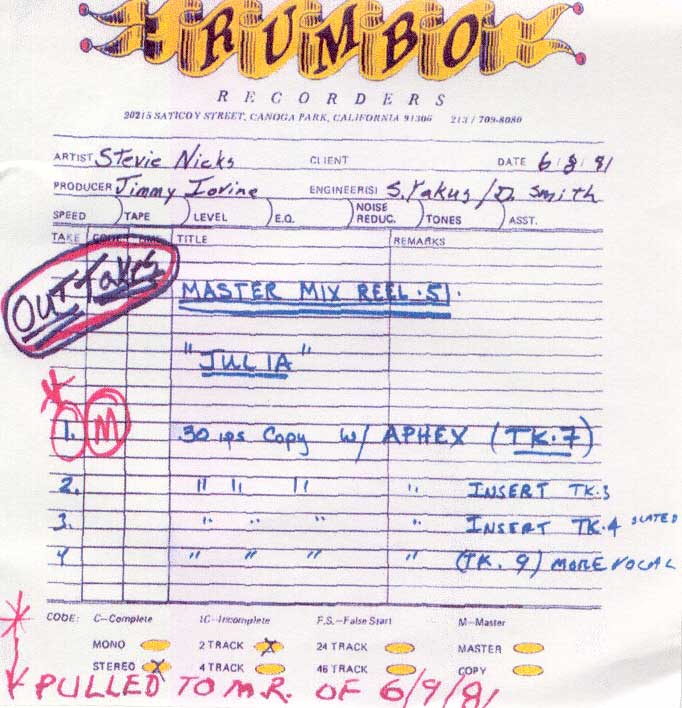 RUMBO
RECORDERS
20215 SATICOY STREET, CANOGA PARK, CALIFORNIA 91306 213/709-8080
ARTIST Stevie Nicks CLIENT DATE 6/8/81
PRODUCER Jimmy Iovine ENGINEER(S) S. Yakus / D. Smith
SPEED TAPE LEVEL E.Q. NOISE REDUC. TONES ASST.
TAKE CODE TIME TITLE REMARKS
OUT TAKES
MASTER MIX REEL .51.
"JULIA"
1. M .30 ips Copy w/ APHEX (TK.7)
2. " " " " INSERT TK.3
3. " " " " INSERT TK.4 SLATED
4 " " " " (TK. 9) MORE VOCAL
CODE: C—Complete IC—Incomplete F.S.—False Start M—Master
MONO 2 TRACK X 24 TRACK MASTER
STEREO X 4 TRACK 46 TRACK COPY
PULLED TO M.R. OF 6/9/81